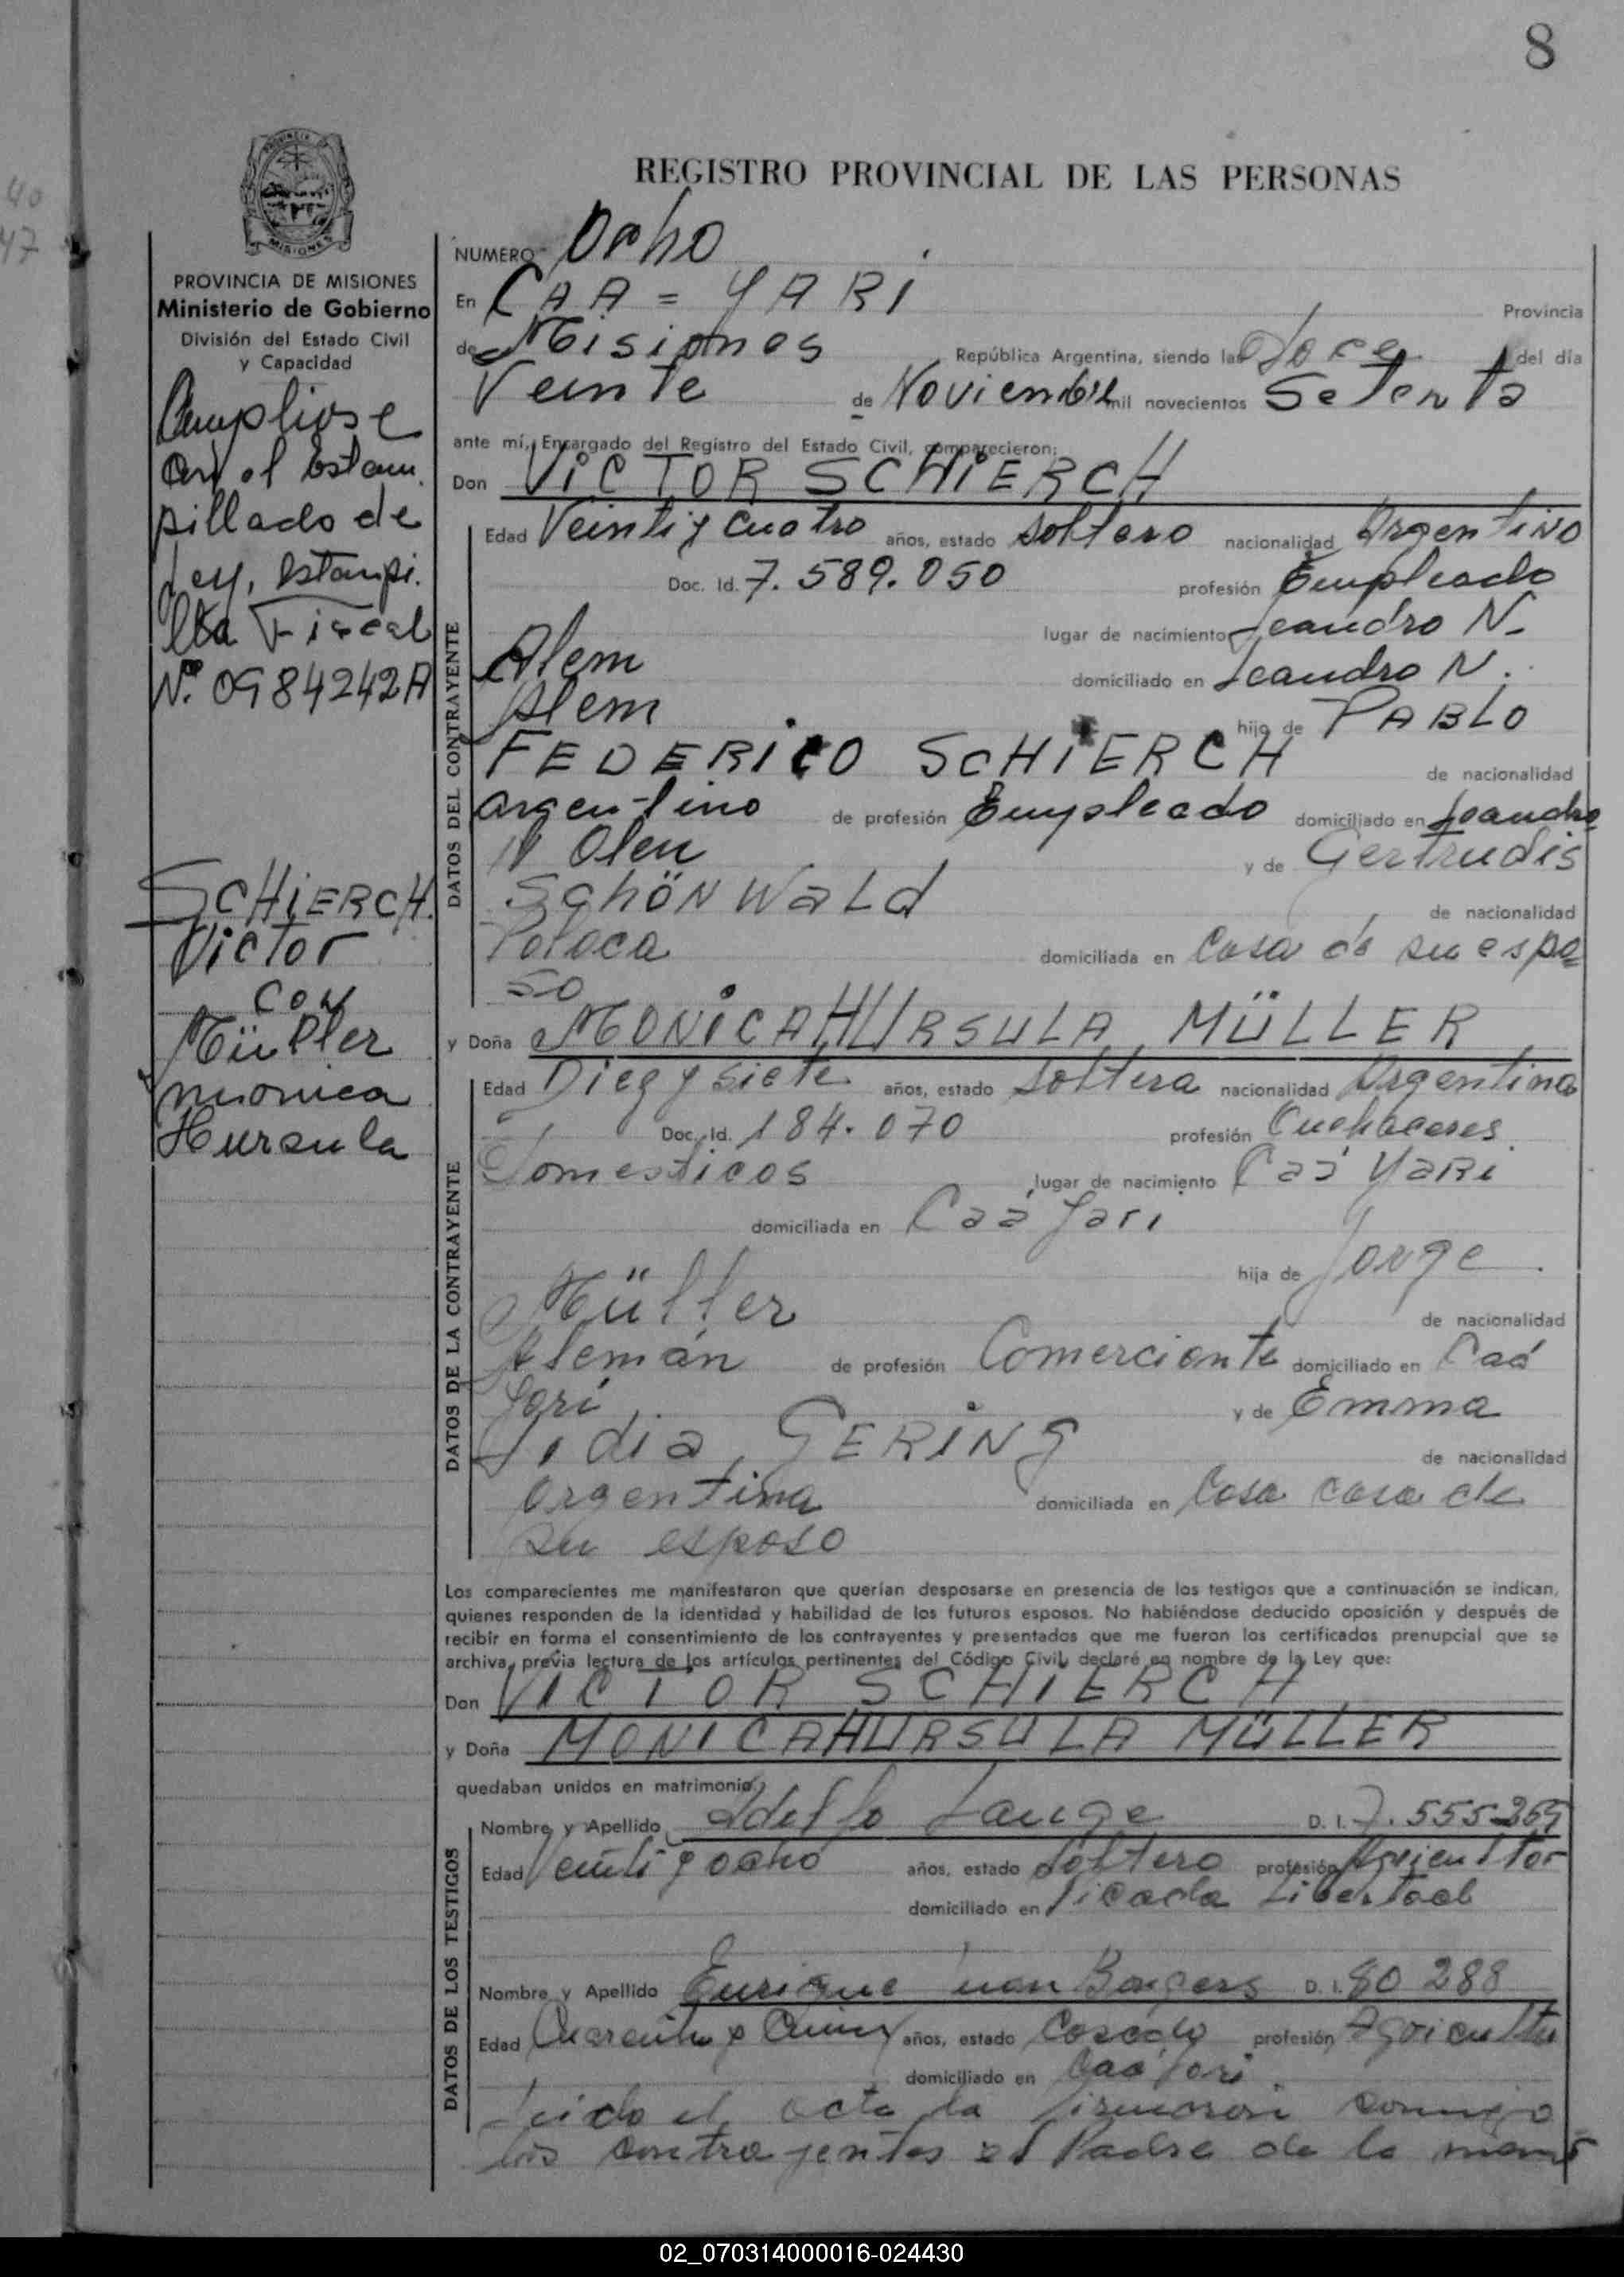 8
40
47
PROVINCIA
MISIONES
PROVINCIA DE MISIONES
Ministerio de Gobierno
División del Estado Civil
y Capacidad
Cumpliose
con el Estam.
pillado de
Ley, Estampi.
lla Fiscal
Nº. 0984242A
SCHiERCH.
Victor
con
Müller
monica
Hursula
REGISTRO PROVINCIAL DE LAS PERSONAS
NUMERO Ocho
En CAA = YARI Provincia
de Misiones República Argentina, siendo las Doce del día
Veinte de Noviembre mil novecientos Setenta
ante mí, Encargado del Registro del Estado Civil, comparecieron:
Don VICTOR SCHiERCH
DATOS DEL CONTRAYENTE
Edad Veinti y cuatro años, estado soltero nacionalidad Argentino
Doc. Id. 7.589.050 profesión Empleado
lugar de nacimiento Leandro N.
Alem domiciliado en Leandro N.
Alem hijo de PABLO
FEDERICO SCHiERCH de nacionalidad
argentino de profesión Empleado domiciliado en Leandro
N Alem y de Gertrudis
SchöNWaLd de nacionalidad
Polaca domiciliada en Casa de su espo=
so
y Doña MONiCA HURSULA MÜLLER
DATOS DE LA CONTRAYENTE
Edad Diez y siete años, estado Soltera nacionalidad Argentina
Doc. Id. 184.070 profesión Quehaceres
Domesticos lugar de nacimiento Caá YaRi
domiciliada en Caá Yari
hija de Jorge
Müller de nacionalidad
Alemán de profesión Comerciante domiciliado en Caá
Yari y de Emma
Lidia GERiNG de nacionalidad
Argentina domiciliada en Casa casa de
su esposo
Los comparecientes me manifestaron que querían desposarse en presencia de los testigos que a continuación se indican,
quienes responden de la identidad y habilidad de los futuros esposos. No habiéndose deducido oposición y después de
recibir en forma el consentimiento de los contrayentes y presentados que me fueron los certificados prenupcial que se
archiva, previa lectura de los artículos pertinentes del Código Civil, declaré en nombre de la Ley que:
Don VICTOR SCHIERCH
y Doña MONICA HURSULA MÜLLER
quedaban unidos en matrimonio
DATOS DE LOS TESTIGOS
Nombre y Apellido Adolfo Lange D. I. 7.555369
Edad Veinti y ocho años, estado Soltero profesión Agricultor
domiciliado en Picada Libertad
Nombre y Apellido Enrique Juan D. I. 80 288
Edad Cuarenta y Cinco años, estado Casado profesión Agricultu
domiciliado en Caá Yari
Leida el acta la firmaron conmigo
los contrayentes el Padre de la meno=
02_070314000016-024430